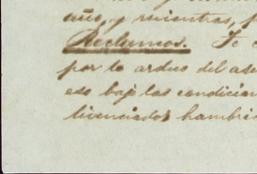 año, y mientras, p
Reclumos. Te
por lo arduo del as
eso bajo las condicion
licenciados hambri